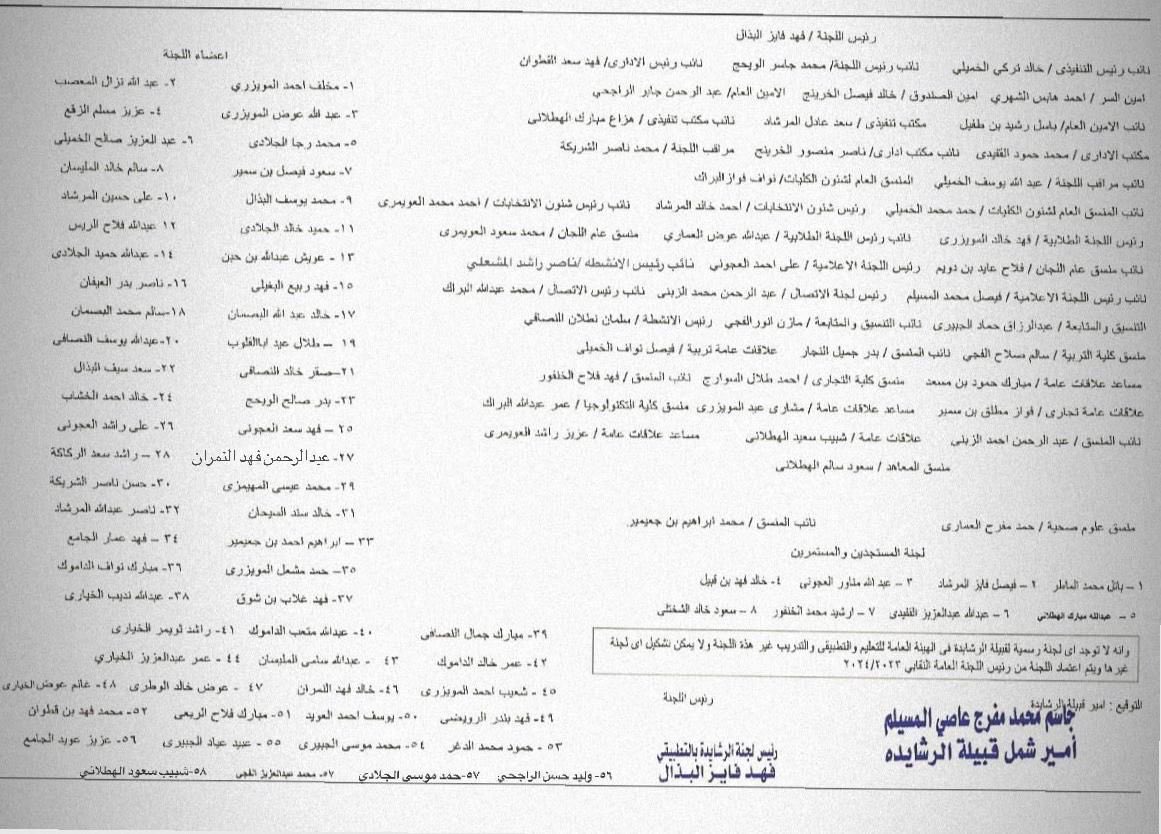 رئيس اللجنة / فهد فايز البذال
نائب رئيس التنفيذى / خالد تركي الخميلي نائب رئيس اللجنة/ محمد جاسر الويحج نائب رئيس الادارى/ فهد سعد القطوان
امين السر / احمد هابس الشهري امين الصندوق / خالد فيصل الخرينج الامين العام/ عبد الرحمن جابر الراجحي
نائب الامين العام/ باسل رشيد بن طفيل مكتب تنفيذى / سعد عادل المرشاد نائب مكتب تنفيذى / هزاع مبارك الهطلانى
مكتب الادارى / محمد حمود القفيدى نائب مكتب ادارى/ ناصر منصور الخرينج مراقب اللجنة / محمد ناصر الشريكة
نائب مراقب اللجنة / عبد الله يوسف الخميلي المنسق العام لشئون الكليات/ نواف فواز البراك
نائب المنسق العام لشئون الكليات / حمد محمد الخميلي رئيس شئون الانتخابات / احمد خالد المرشاد نائب رئيس شئون الانتخابات / احمد محمد العويمرى
رئيس اللجنة الطلابية / فهد خالد المويزرى نائب رئيس اللجنة الطلابية / عبدالله عوض العمارى منسق عام اللجان / محمد سعود العويمرى
نائب منسق عام اللجان / فلاح عايد بن دويم رئيس اللجنة الاعلامية / على احمد العجوني نائب رئيس الانشطه /ناصر راشد المشعلي
نائب رئيس اللجنة الاعلامية / فيصل محمد المسيلم رئيس لجنة الاتصال / عبد الرحمن محمد الزبنى نائب رئيس الاتصال / محمد عبدالله البراك
التنسيق والمتابعة / عبدالرزاق حماد الجبيرى نائب التنسيق والمتابعة / مازن انور الفجي رئيس الانشطة / سلمان نطلان النصافي
منسق كلية التربية / سالم صلاح الفجي نائب المنسق / بدر جميل النجار علاقات عامة تربية / فيصل نواف الخميلى
مساعد علاقات عامة / مبارك حمود بن مسعد منسق كلية التجارى / احمد طلال السوارج نائب المنسق / فهد فلاح الخنفور
علاقات عامة تجارى / فواز مطلق بن سمير مساعد علاقات عامة / مشارى عبد المويزرى منسق كلية التكنولوجيا / عمر عبدالله البراك
نائب المنسق / عبد الرحمن احمد الزبنى علاقات عامة / شبيب سعيد الهطلانى مساعد علاقات عامة / عزيز راشد العويمرى
منسق المعاهد / سعود سالم الهطلانى
منسق علوم صحية / حمد مفرح العمارى نائب المنسق / محمد ابراهيم بن جعيمير
لجنة المستجدين والمستمرين
١ – باتل محمد الماطر ٢ – فيصل فايز المرشاد ٣ – عبد الله مناور العجونى ٤- خالد فهد بن قبيل
٥ – عبدالله مبارك الهطلاني ٦ – عبدالله عبدالعزيز القفيدى ٧ – ارشيد محمد الخنفور ٨ – سعود خالد الشختلى
وانه لا توجد اى لجنة رسمية لقبيلة الرشايدة فى الهيئة العامة للتعليم والتطبيقى والتدريب غير هذة اللجنة ولا يمكن تشكيل اى لجنة
غيرها ويتم اعتماد اللجنة من رئيس اللجنة العامة النقابي ٢٠٢٤/٢٠٢٣
التوقيع : امير قبيلة الرشايدة رئيس اللجنة
جاسم محمد مفرج عاصي المسيلم
أمير شمل قبيلة الرشايده
رئيس لجنة الرشايدة بالتطبيقي
فهد فايز البذال
اعضاء اللجنة
١- مخلف احمد المويزري ٢- عبد الله نزال المعصب
٣- عبد الله عوض المويزرى ٤- عزيز مسلم الزقع
٥- محمد رجا الجلادى ٦- عبد العزيز صالح الخميلى
٧- سعود فيصل بن سمير ٨- سالم خالد المليسان
٩- محمد يوسف البذال ١٠- على حسين المرشاد
١١- حميد خالد الجلادى ١٢ عبدالله فلاح الريس
١٣ - عويش عبدالله بن حبن ١٤- عبدالله حميد الجلادى
١٥- فهد ربيع البغيلى ١٦- ناصر بدر العيفان
١٧- خالد عبد الله البصمان ١٨-سالم محمد البصمان
١٩ – طلال عبد اباالقلوب ٢٠-عبدالله يوسف النصافى
٢١-صقر خالد النصافى ٢٢- سعد سيف البذال
٢٣- بدر صالح الويحج ٢٤- خالد احمد الخشاب
٢٥ – فهد سعد العجونى ٢٦- على راشد العجونى
٢٧- عبدالرحمن فهد النمران ٢٨ – راشد سعد الركاكة
٢٩- محمد عيسى المهيمزى ٣٠- حسن ناصر الشريكة
٣١- خالد سند السيحان ٣٢- ناصر عبدالله المرشاد
٣٣ – ابراهيم احمد بن جعيمير ٣٤ – فهد عمار الجامع
٣٥- حمد مشعل المويزرى ٣٦- مبارك نواف الداموك
٣٧- فهد غلاب بن شوق ٣٨- عبدالله نديب الخيارى
٣٩- مبارك جمال النصافى ٤٠- عبدالله متعب الداموك ٤١- راشد ثويمر الخيارى
٤٢- عمر خالد الداموك ٤٣ - عبدالله سامى المليسان ٤٤ - عمر عبدالعزيز الخياري
٤٥ - شعيب احمد المويزرى ٤٦- خالد فهد النمران ٤٧ - عوض خالد الوطرى ٤٨- غانم عوض الخيارى
٤٩- فهد بندر الرويضى ٥٠- يوسف احمد العويد ٥١- مبارك فلاح الربعى ٥٢- محمد فهد بن قطوان
٥٣ - حمود محمد الدغر ٥٤ - محمد موسى الجبيرى ٥٥ - عبيد عياد الجبيرى ٥٦ - عزيز عويد الجامع
٥٦- وليد حسن الراجحي ٥٧-حمد موسى الجلادي ٥٧- محمد عبدالعزيز الفجى ٥٨-شبيب سعود الهطلاني